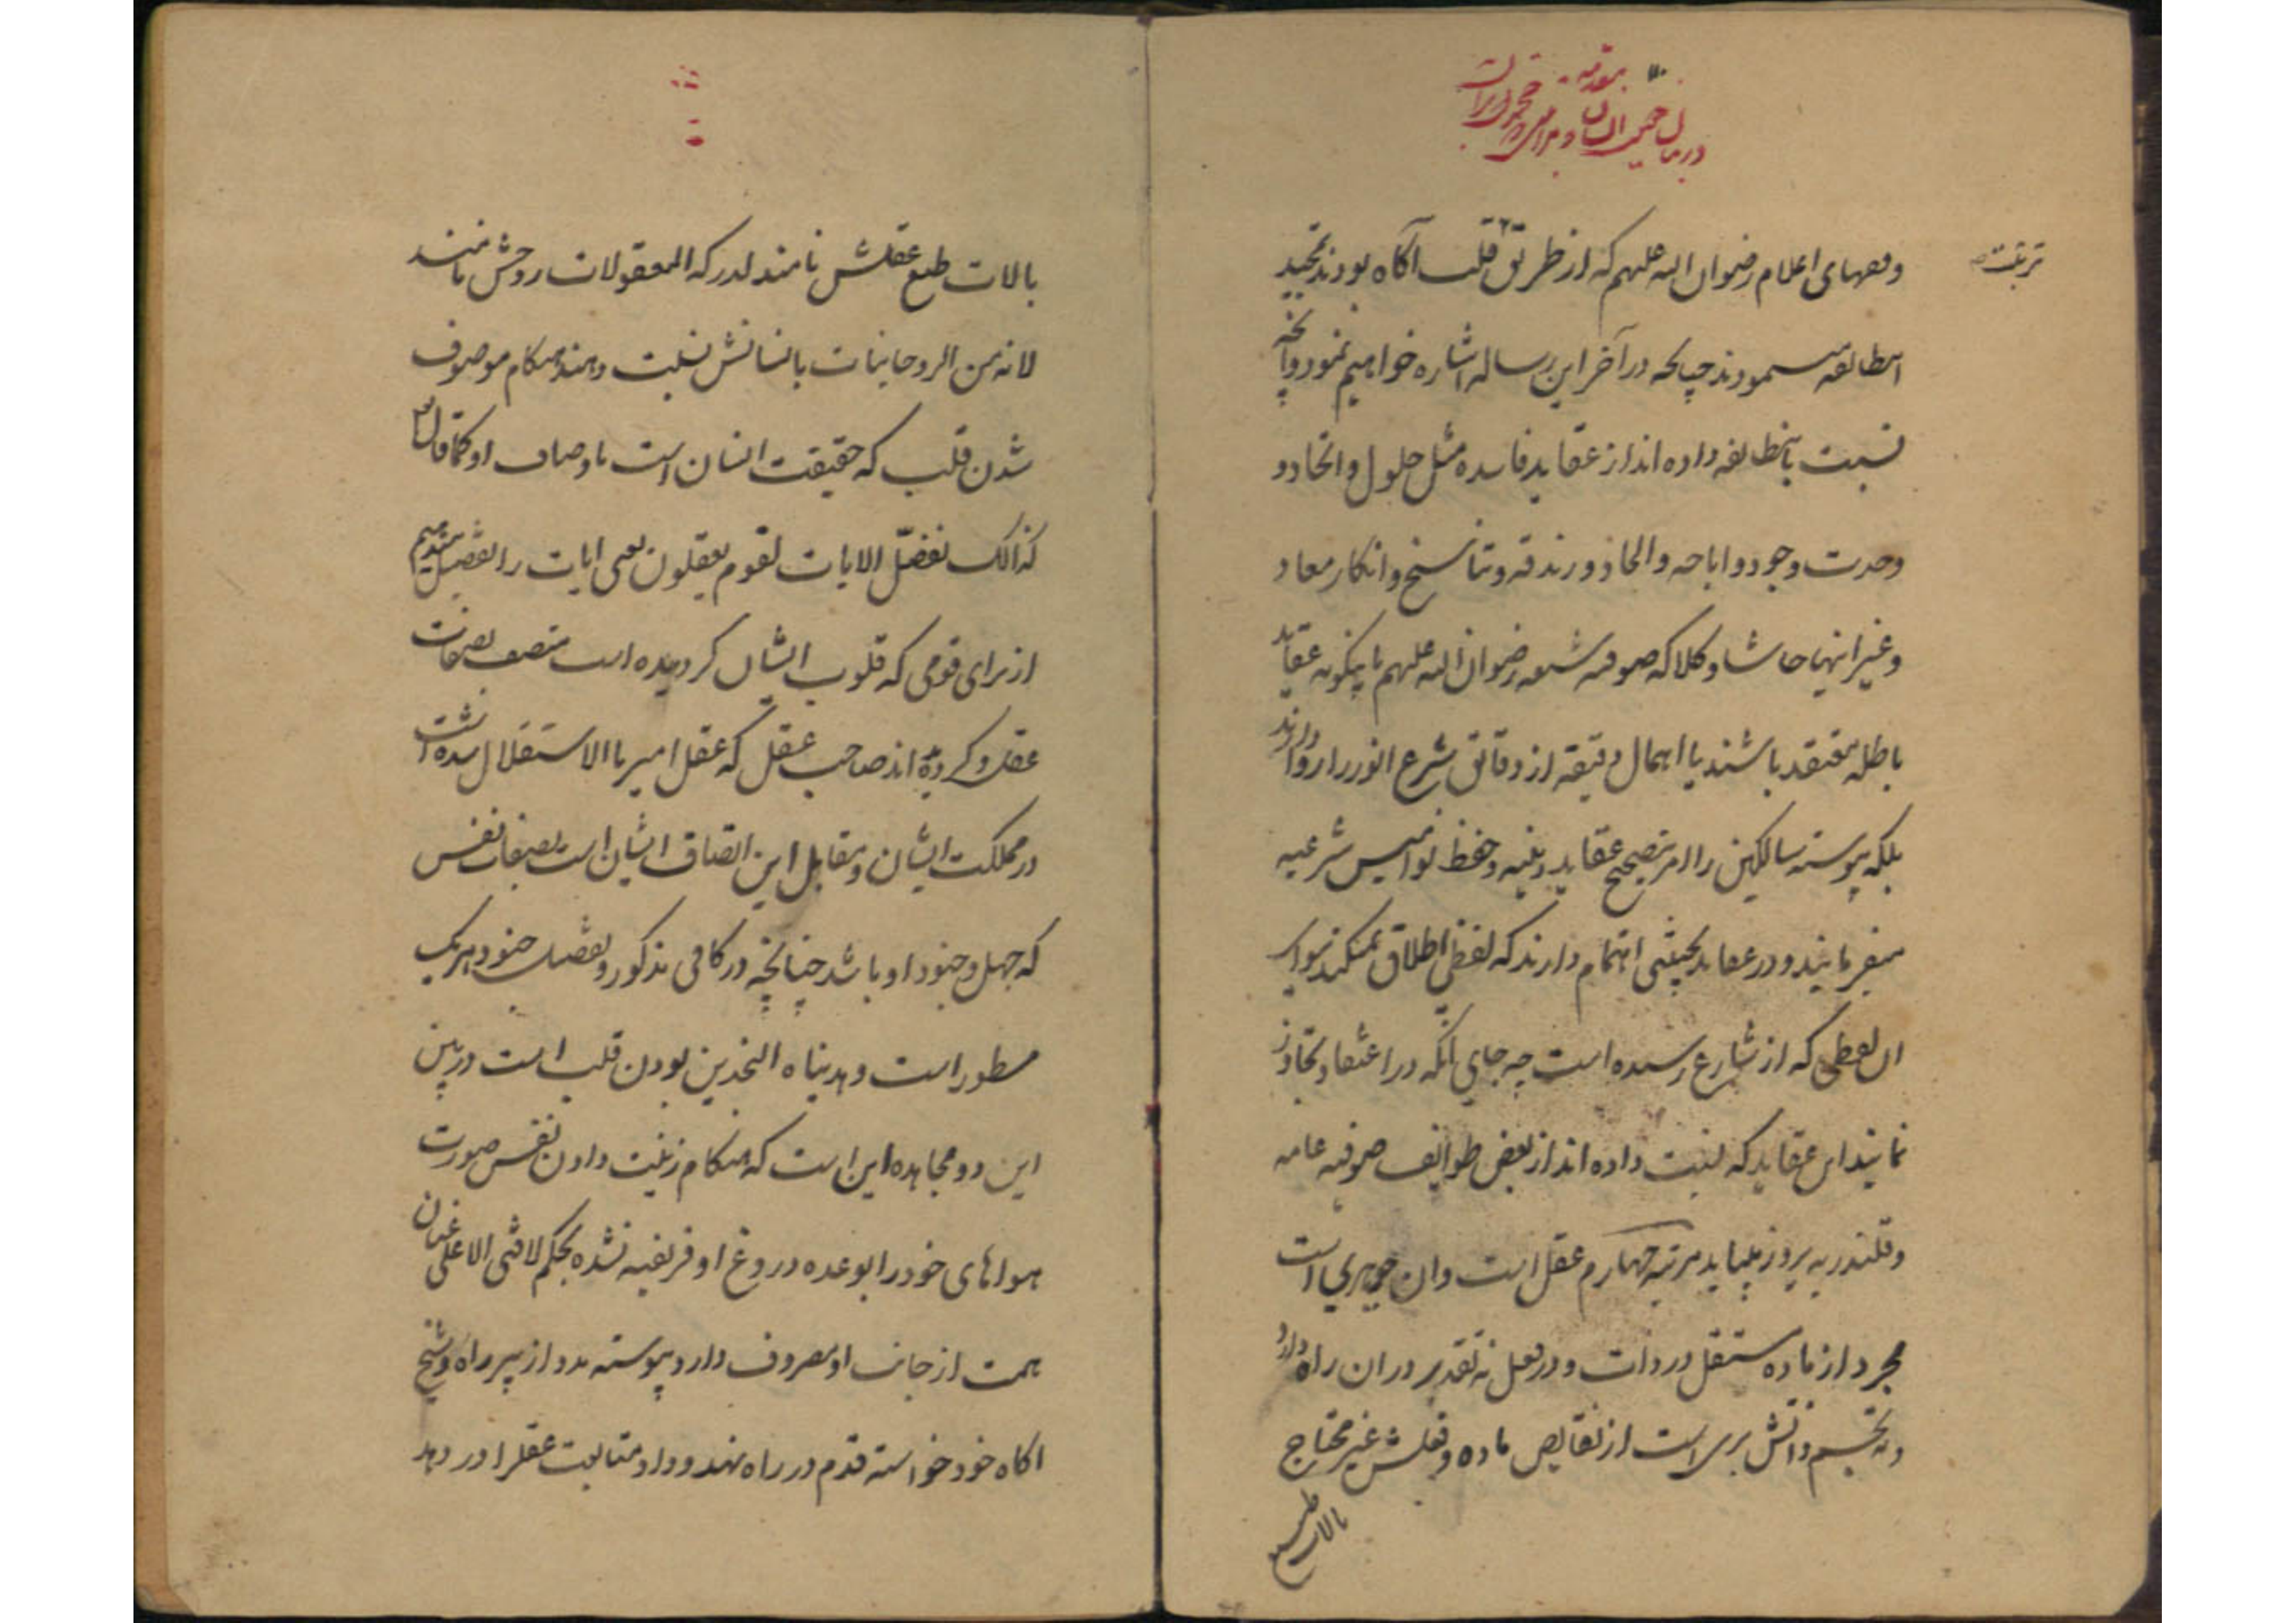 مقدمه
در بیان حقیقت انسان و مراتب
تربیت
وفقهای اعلام رضوان الله علیهم که از طریق قلب آگاه بودند تمجید
اینطایفه مینمودند چنانچه در آخر این رساله اشاره خواهیم نمود و آنچه
نسبت باینطایفه داده اند از عقاید فاسده مثل حلول و اتحاد و
وحدت وجود و اباحه و الحاد و زندقه و تناسخ و انکار معاد
و غیر اینها حاشا و کلا که صوفیه شیعه رضوان الله علیهم باینگونه عقاید
باطله معتقد باشند یا اهمال دقیقه از دقایق شرع انور را روا دارند
بلکه پیوسته سالکین را امر بتصحیح عقاید دینیه و حفظ نوامیس شرعیه
میفرمایند و در عقاید بحیثیتی اهتمام دارند که لفظی اطلاق نمیکنند سوای
ان لفظی که از شارع رسیده است چه جای آنکه در اعتقاد تجاوز
نمایند این عقاید که نسبت داده اند از بعض طوایف صوفیه عامه
و قلندریه بروز مینماید مرتبه چهارم عقل است و ان جوهری است
مجرد از ماده مستقل در ذات و در فعل نه تقدیر در ان راه دارد
و نه تجسم ذاتش بری است از نقایص ماده و فعلش غیر محتاج
بالات طبع
بالات طبع عقلش نامند لدرکه المعقولات روحش نامند
لانه من الروحانیات بانسانش نسبت دهند هنگام موصوف
شدن قلب که حقیقت انسان است باوصاف او کما قال
کذالک نفصّل الایات لقوم یعقلون یعنی ایات را تفصیل میدهیم
از برای قومی که قلوب ایشان گردیده است متصف بصفات
عقل و گردیده اند صاحب عقل که عقل امیر باالاستقلال شده است
در مملکت ایشان و مقابل این اتصاف ایشان است بصفات نفس
که جهل و جنود او باشد چنانچه در کافی مذکور و تفصیل جنود هریک
مسطور است و هدیناه النجدین بودن قلب است در بین
این دو مجاهده این است که هنگام زینت دادن نفس صورت
هواهای خود را بوعده دروغ او فریفته نشده بحکم لافتی الا علی عنان
همت از جانب او مصروف دارد و پیوسته مدد از پیر راه و شیخ
اکاه خود خواسته قدم در راه نهد و داد متابعت عقل را در دهد